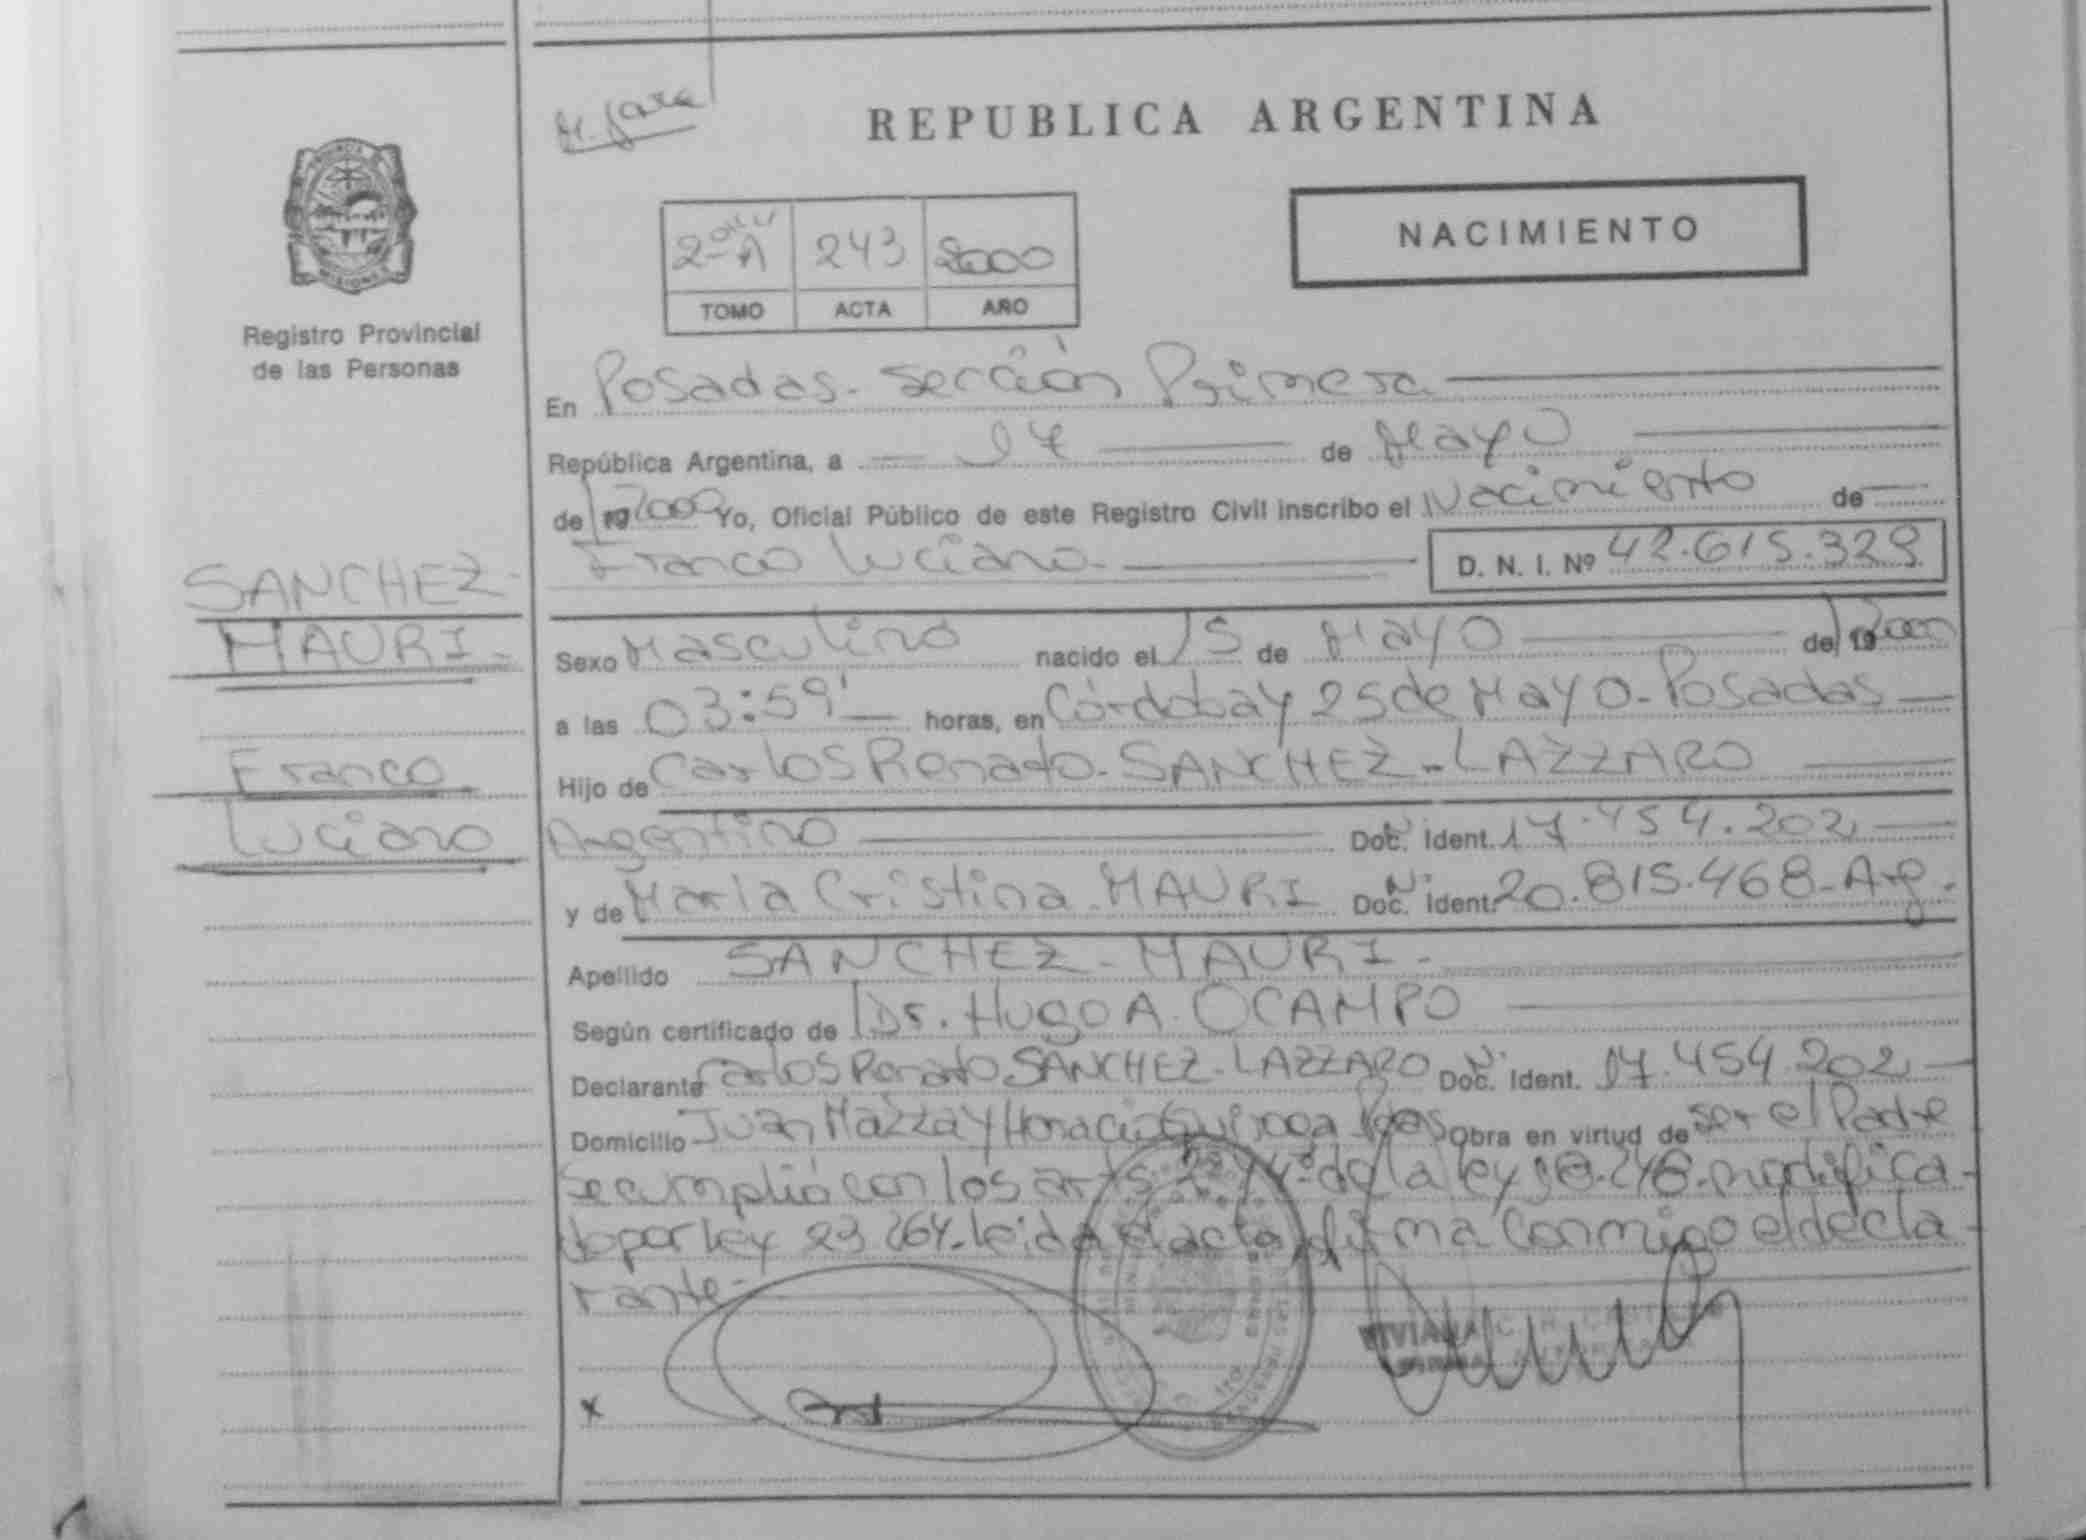 REPUBLICA ARGENTINA
NACIMIENTO
2º A 243 2000
TOMO ACTA AÑO
PROVINCIA
MISIONES
Registro Provincial
de las Personas
En Posadas - Sección Primera
República Argentina, a 17 de Mayo
de 19 2000 Yo, Oficial Público de este Registro Civil inscribo el Nacimiento de
Franco Luciano - D. N. I. Nº 42.615.329
SANCHEZ -
MAURI -
Franco
Luciano
Sexo Masculino nacido el 15 de Mayo de 19 2000
a las 03:59' horas, en Córdoba y 25 de Mayo - Posadas
Hijo de Carlos Renato - SANCHEZ - LAZZARO
Argentino Doc. Ident. 17.454.202
y de María Cristina - MAURI Doc. Ident. 20.815.468 - Arg.
Apellido SANCHEZ - MAURI -
Según certificado de Dr. Hugo A. OCAMPO
Declarante Carlos Renato SANCHEZ - LAZZARO Doc. Ident. 17.454.202
Domicilio Juan Mazza y Horacio Quiroga Pdas Obra en virtud de ser el Padre
Se cumplió con los arts 2º y 4º de la ley 18.248 - modifica-
do por ley 23.264 - leida el acta, firma conmigo el decla-
rante -
x
VIVIANA